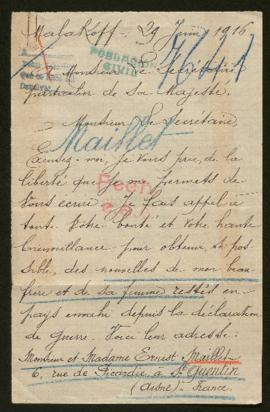 Malakoff - 29 Juin 1916
POBLACIÓN
CIVIL
Monsieur le Secrétaire
particulier de Sa Majesté.
Monsieur le Secrétaire
Maillet
Excusez-moi, je vous prie, de la
liberté que je me permets de
vous écrire. Je fais appel à
toute votre bonté et votre haute
bienveillance pour obtenir, si pos
sible, des nouvelles de mon beau
frère et de sa femme restés en
pays envahi depuis la déclaration
de guerre. Voici leur adresse:
Monsieur et Madame Ernest Maillet
6, rue de Picardie, à St Quentin
(Aisne) - France.